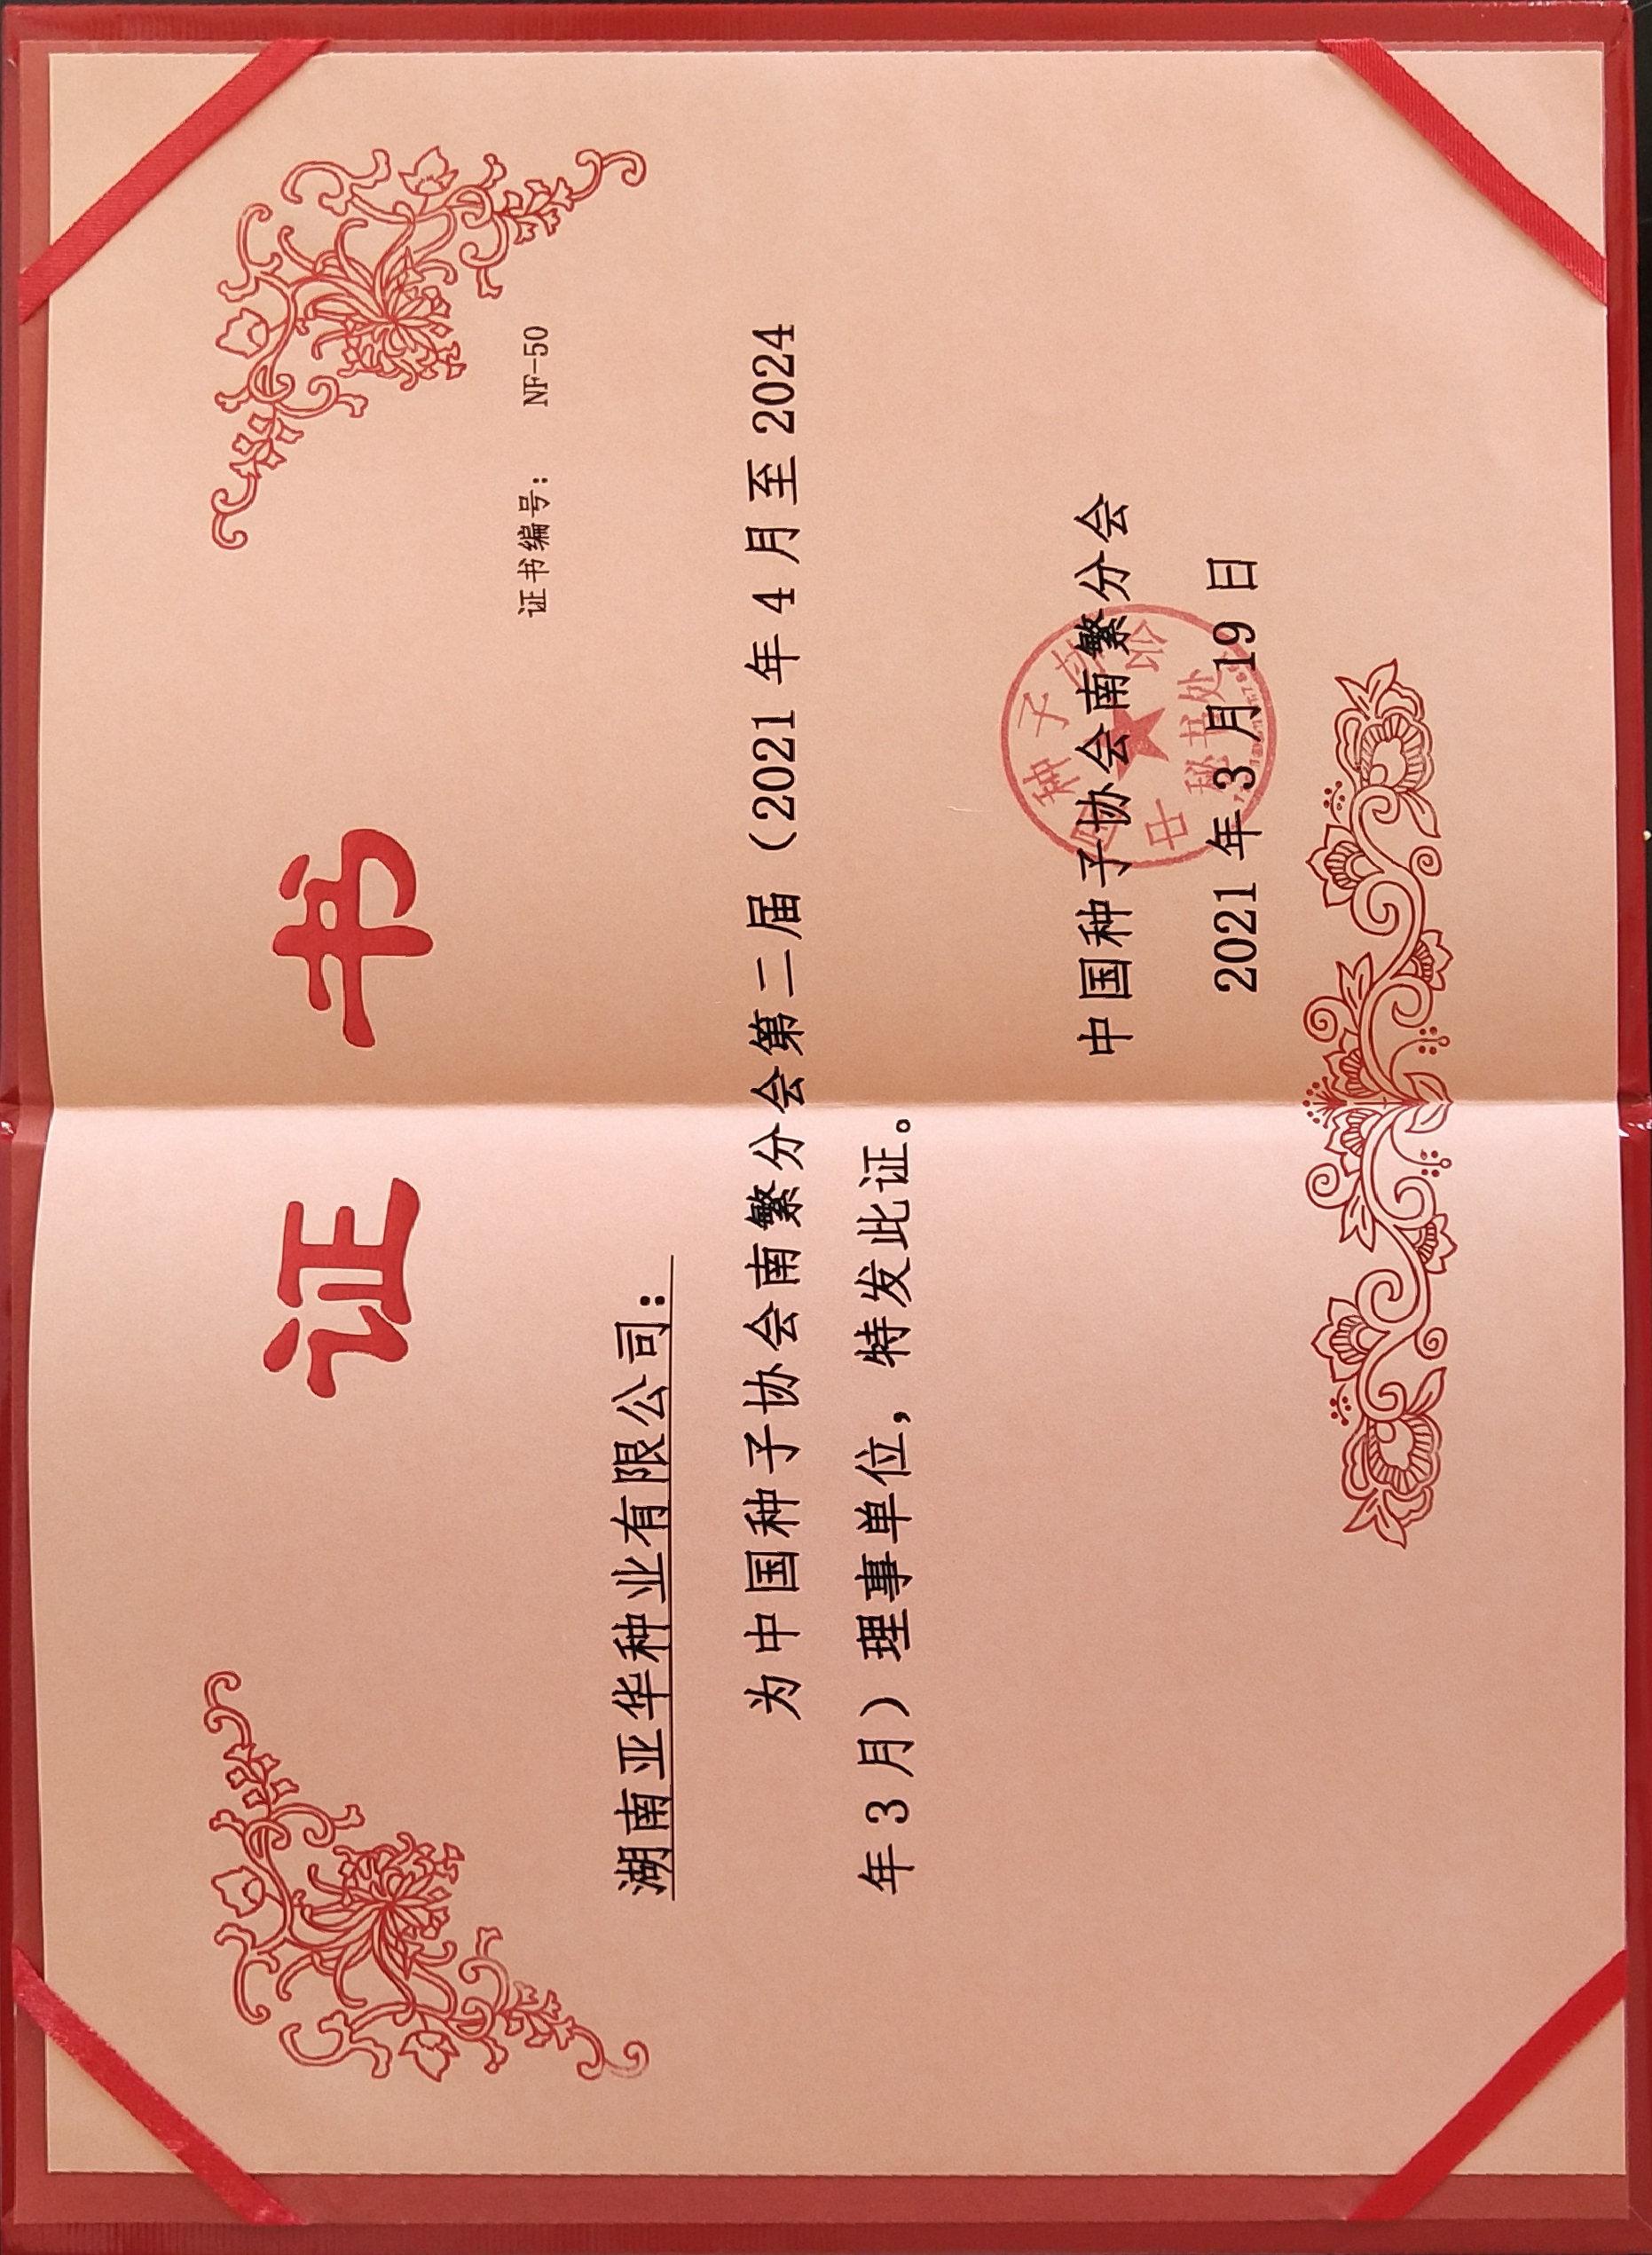 证 书
证书编号： NF-50
湖南亚华种业有限公司：
为中国种子协会南繁分会第二届（2021 年 4 月至 2024
年 3 月）理事单位，特发此证。
中国种子协会南繁分会
2021 年 3 月 19 日
中国种子协会
秘书处